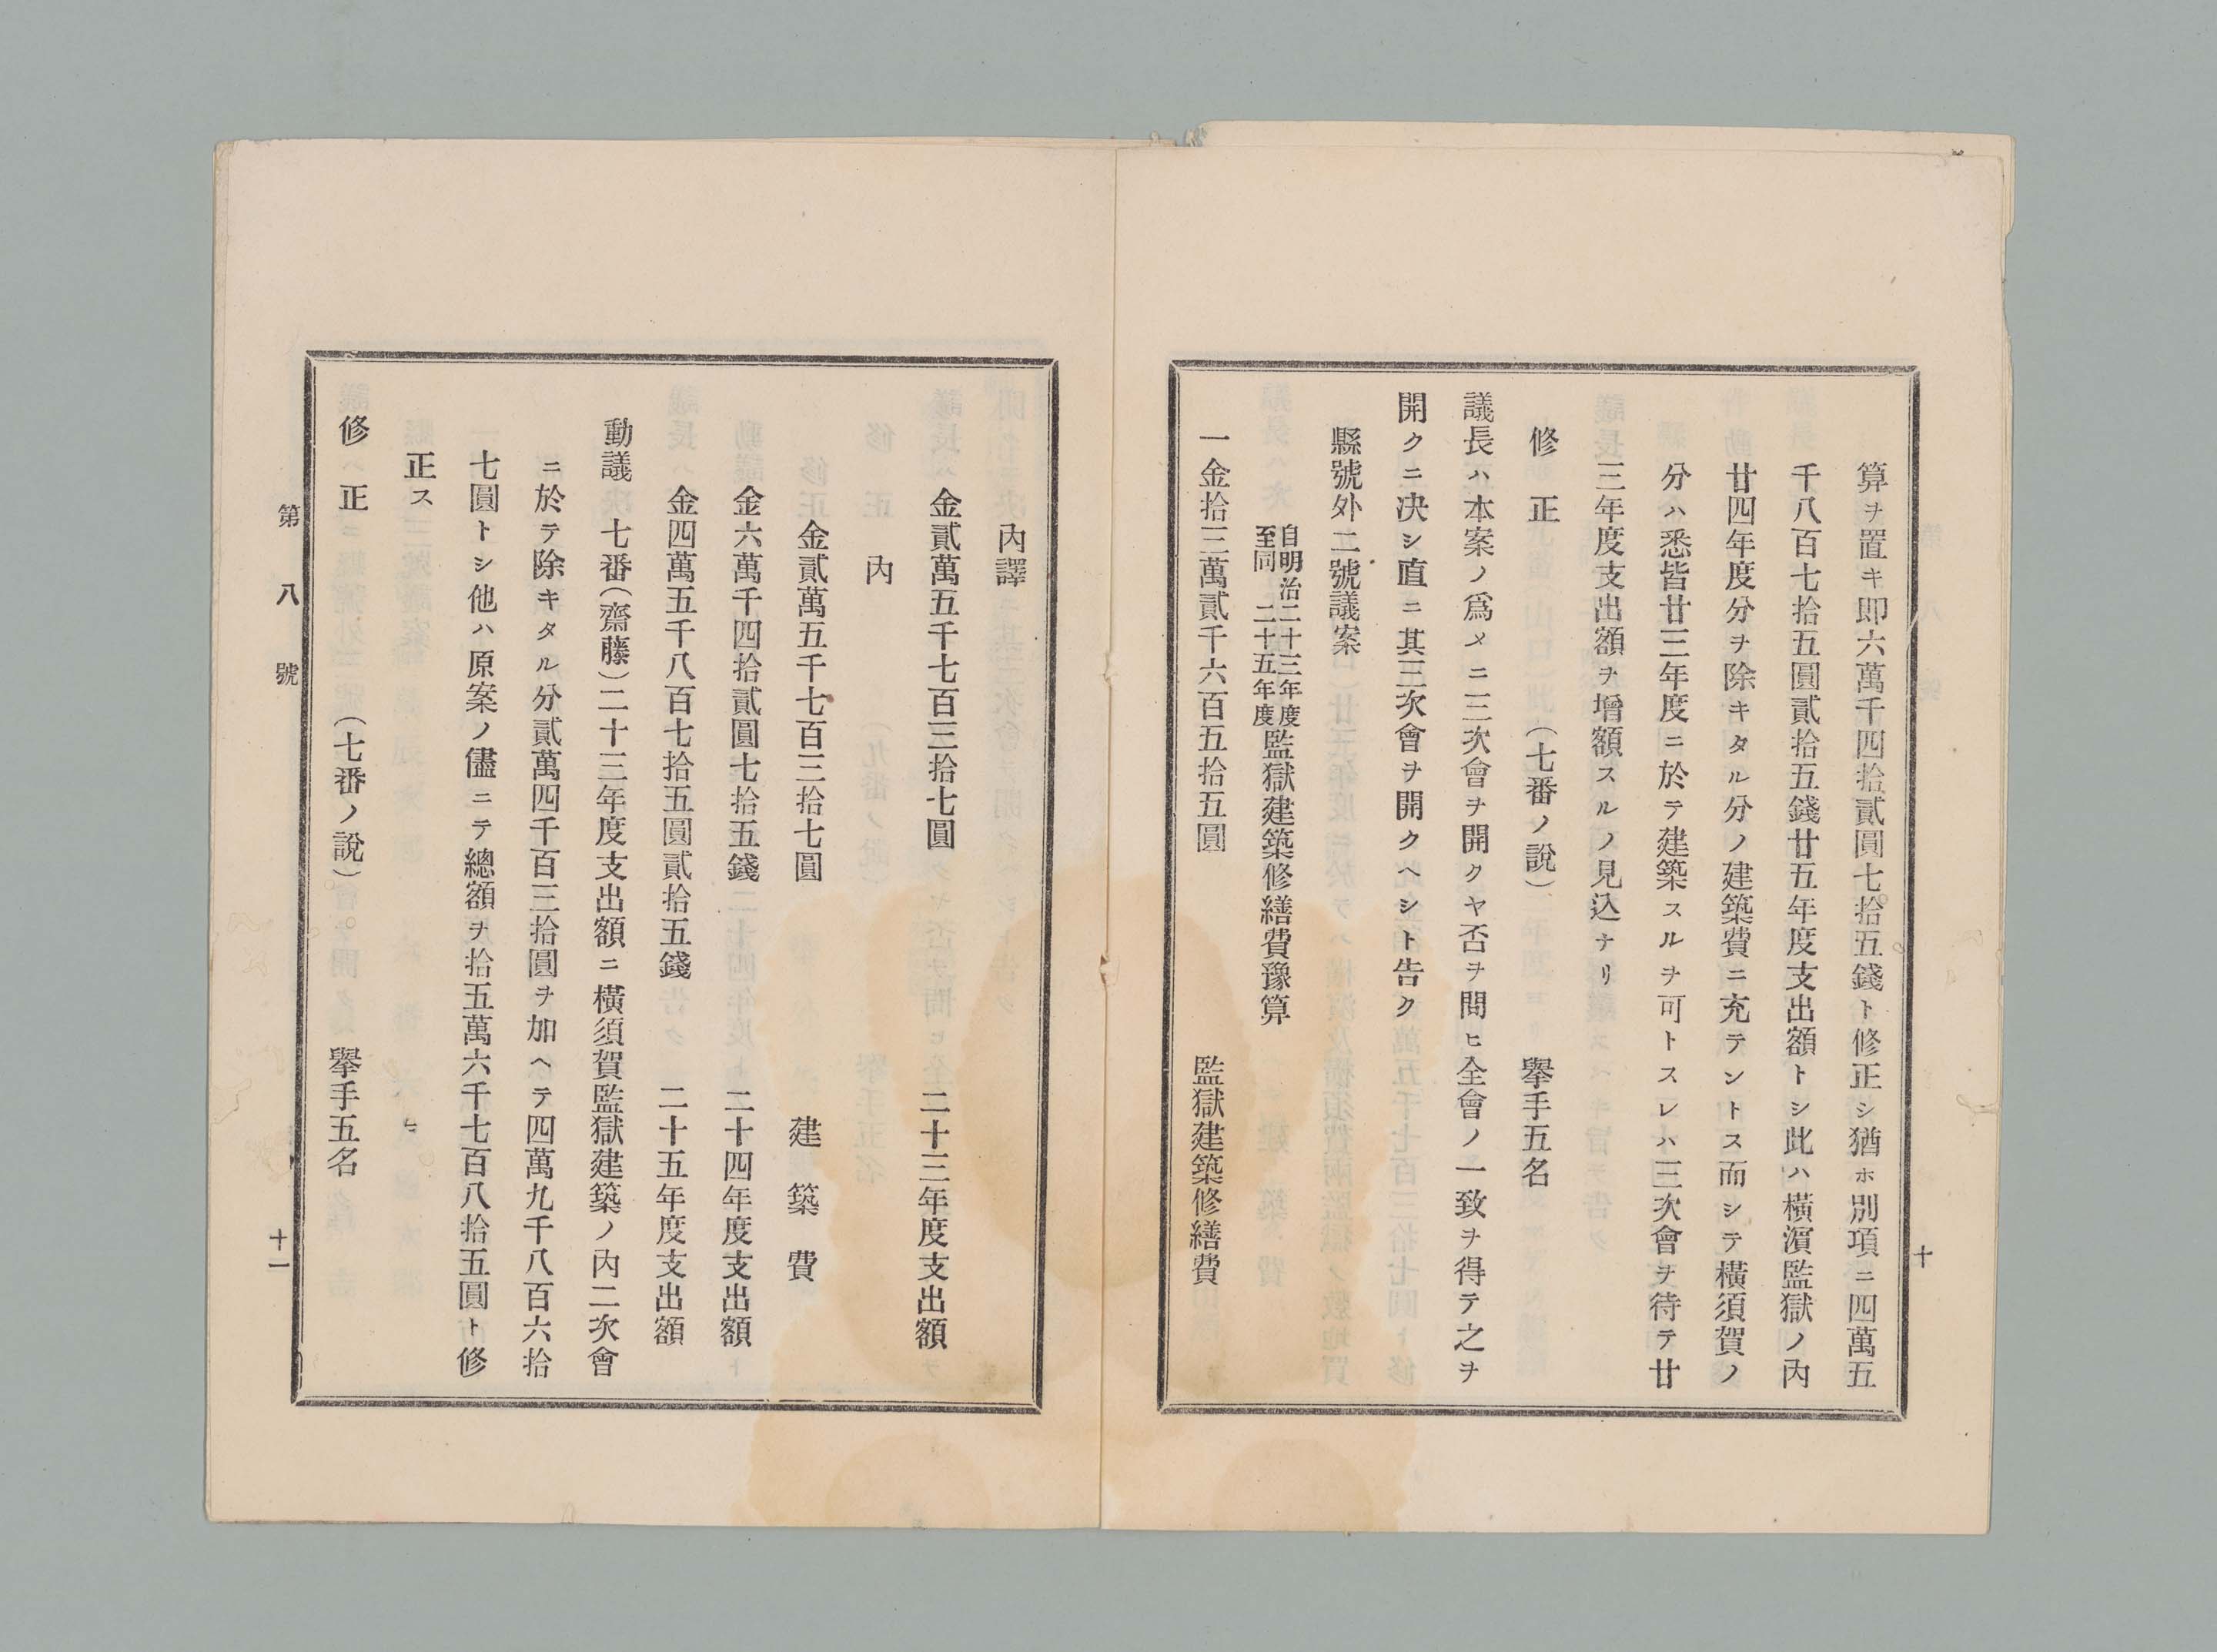 算ヲ置キ即六萬千四拾貳圓七拾五錢ト修正シ猶ホ別項ニ四萬五
千八百七拾五圓貳拾五錢廿五年度支出額トシ此ハ橫濵監獄ノ內
廿四年度分ヲ除キタル分ノ建築費ニ充テントス而シテ橫須賀ノ
分ハ悉皆廿三年度ニ於テ建築スルヲ可トスレハ三次會ヲ待テ廿
三年度支出額ヲ增額スルノ見込ナリ
修正 (七番ノ說) 擧手五名
議長ハ本案ノ爲メニ三次會ヲ開クヤ否ヲ問ヒ全會ノ一致ヲ得テ之ヲ
開クニ决シ直ニ其三次會ヲ開クヘシト告ク
縣號外二號議案
自明治二十三年度
至同二十五年度
監獄建築修繕費豫算
一金拾三萬貳千六百五拾五圓 監獄建築修繕費
十
內譯
金貳萬五千七百三拾七圓 二十三年度支出額
內
金貳萬五千七百三拾七圓 建築費
金六萬千四拾貳圓七拾五錢 二十四年度支出額
金四萬五千八百七拾五圓貳拾五錢 二十五年度支出額
動議 七番(齋藤)二十三年度支出額ニ橫須賀監獄建築ノ內二次會
ニ於テ除キタル分貳萬四千百三拾圓ヲ加ヘテ四萬九千八百六拾
七圓トシ他ハ原案ノ儘ニテ總額ヲ拾五萬六千七百八拾五圓ト修
正ス
修正 (七番ノ說) 擧手五名
第八號
十一